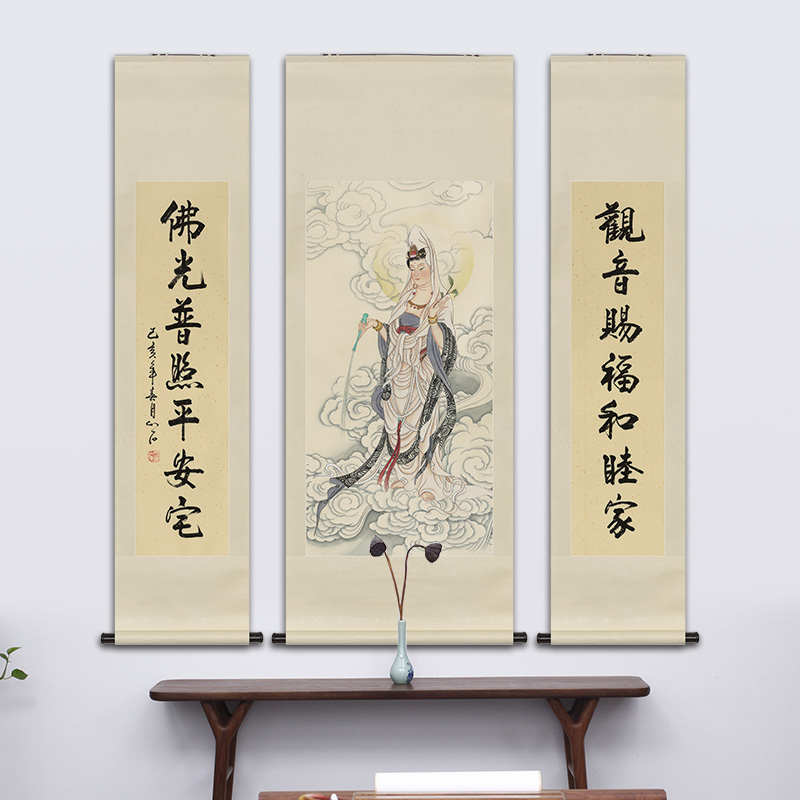 觀音賜福和睦家
佛光普照平安宅
己亥年春月山石